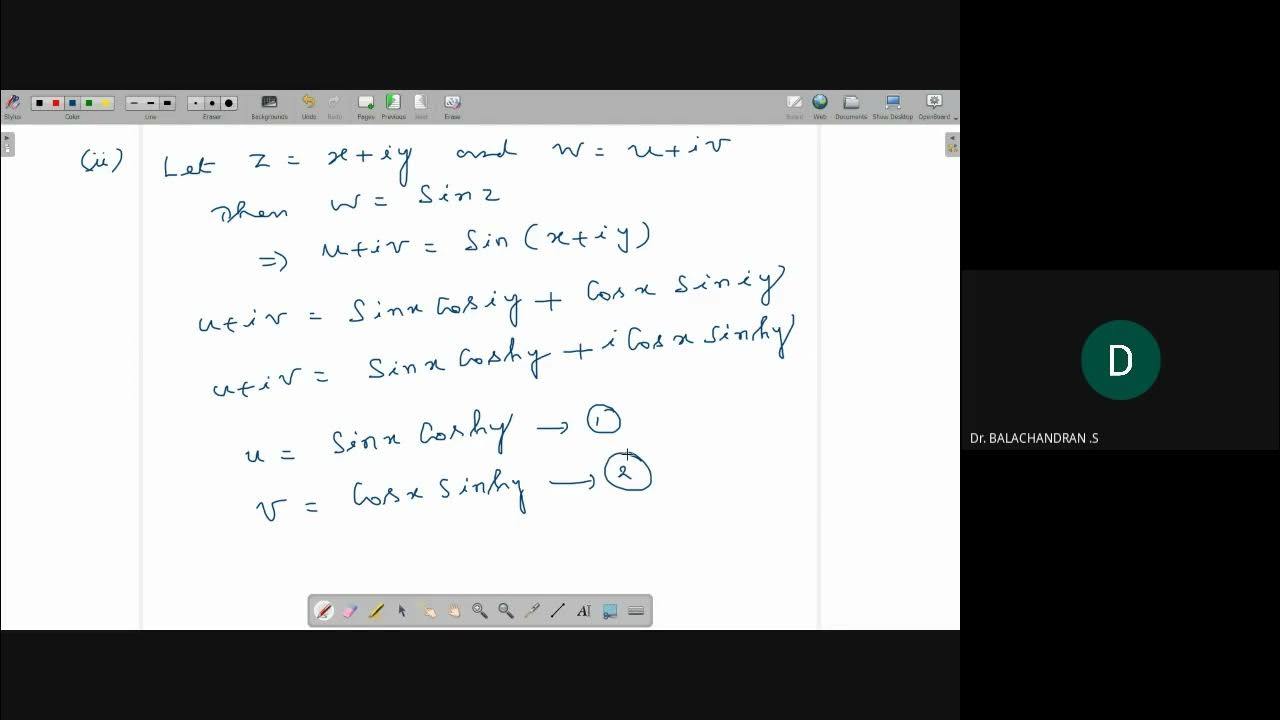 Stylus Color Line Eraser Backgrounds Undo Redo Pages Previous Next Erase Board Web Documents Show Desktop OpenBoard
(ii) Let z = x+iy and w = u+iv
Then w = Sin z
=> u+iv = Sin (x+iy)
u+iv = Sinx Cosiy + Cosx Siniy
u+iv = Sinx Coshy + i Cosx Sinhy
u = Sinx Coshy → 1
v = Cosx Sinhy → 2
AI
D
Dr. BALACHANDRAN .S